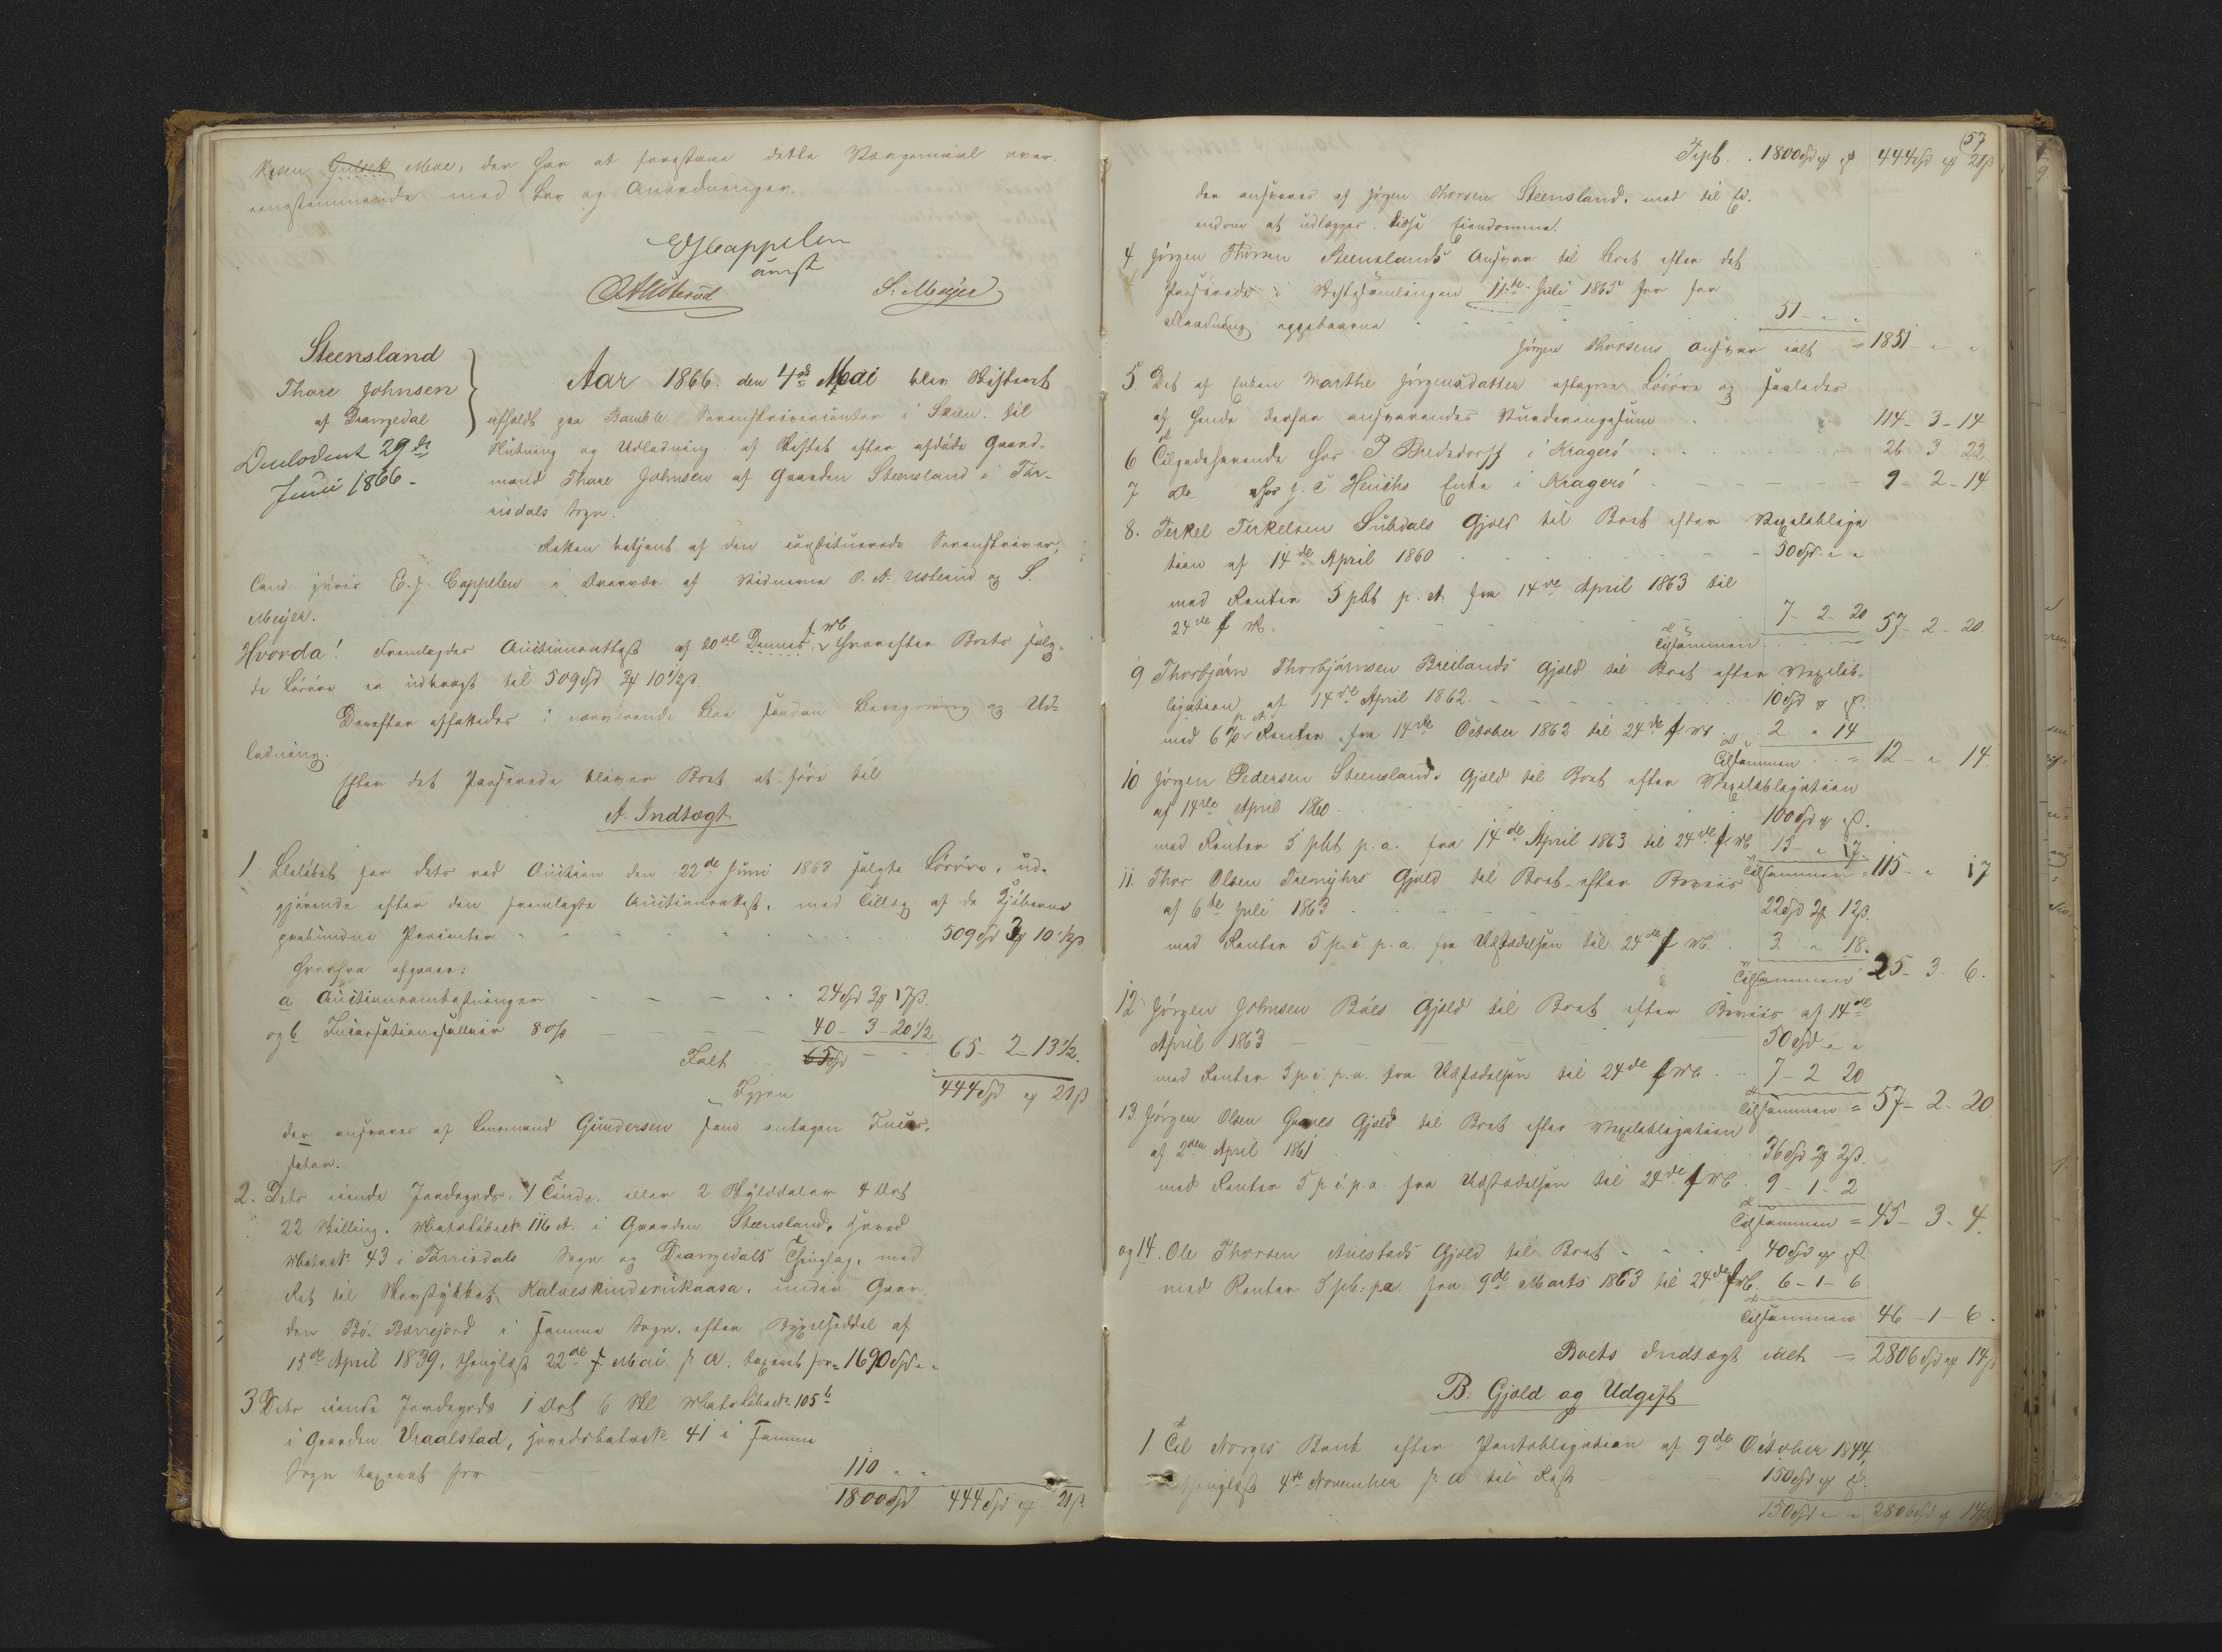 Gulsek Moe, der har at forestaae dette Værgemaal over-
eensstemmende med Lov og Anordninger.
EJCappelen
const
OAUsterud S. Meyer
Steensland
Thore Johnsen
af Drangedal
Deciderert 29de
Juni 1866 -
Aar 1866. den 4de Mai blev Skifteret
afholdt paa Bamble Sorenskrivercontor i Skien. til
Slutning og Udlodning af Skiftet efter afdøde Gaard-
mand Thore Johnsen af Gaarden Steensland i Tør-
risdals Sogn.
Retten betjent af den constituerede Sorenskriver,
Cand. juris E. J. Cappelen i Overvær af Vidnerne O. A. Usterud og S.
Meyer.
Hvorda! Fremlagdes Auctionsattest af 20de Dennes f. M. hvorefter Boets solg-
te Løsøre er udbragt til 509 Spd 3 ₰ 10 1/2 ß
Derefter affattedes i nærværende Boe saadan Beregning og Ud-
lodning.
Efter det Passerede bliver Boet at føre til
A. Indtægt
1. Beløbet for dets ved Auction den 22de Juni 1863 solgte Løsøre, ud-
gjørende efter den fremlagte Auctionsattest, med Tillæg af de Kjøberne
paabundne Procenter 509 Spd 3 ₰ 10 1/2 ß
hvorfra afgaaer:
a Auctionsomkostninger 24 Spd 3 ₰ 17 ß.
og b Incassationssallair 8 % 40 - 3 - 20 1/2
Ialt 65 Spd 65 - 2 - 13 1/2.
Igjen 444 Spd „ ₰ 21 ß
der ansvares af Lensmand Gundersen som antagen Incas-
sator.
2. Dets eiende Jordegods. 1 Tønde. eller 2 Skylddaler 4 Ort
22 Skilling. Matr Løbeno 116 A. i Gaarden Steensland, Hoved
Matrno 43 i Tørrisdals Sogn og Drangedals Thinglag, med
Ret til Skovstykket Kalveskinderukaasa, under Gaar-
den Bø. Børrejord i samme Sogn, efter Bygselseddel af
15de April 1839, thinglæst 22de f Mai s. A. taxeret for = 1690 Spd „ „
3. Dets eiende Jordegods 1 Ort 6 Skl Matr Løbeno 105 b
i Gaarden Vraalstad, Hovedmatrno 41 i samme
Sogn taxeret for 110 „ „
1800 Spd 444 Spd „ ₰ 21 ß.
57
Tspt. . 1800 Spd „ ₰ „ ß 444 Spd „ ₰ 21 ß
der ansvares af Jørgen Thorsen Steensland, med til Ei-
endom at udlægges disse Eiendomme.
4. Jørgen Thorsen Steenslands Ansvar til Boet efter det
Passerede i Skiftesamlingen 11te Juli 1865 for
oppebaarne 51 - „ „
Jørgen Thorsens Ansvar ialt = 1851 „ „
5 Det af Enken Marthe Jørgensdatter aftagne Løsøre og saaledes
af hende derfor ansvarendes Vurderingssum 114 - 3 - 14
6 Tilgodehavende hos P Bredsdorff i Kragerø 26 3 22
7 do hos J. C. Heuchs Enke i Kragerø 9 - 2 - 14
8. Terkel Terkelsen Lübdals Gjæld til Boet efter Vexelobliga
tion af 14de April 1860 50 Spd „ „
med Renter 5 pCt p. A. fra 14de April 1863 til
24de f. M. 7 - 2 - 20
Tilsammen 57 - 2 - 20
9 Thorbjørn Thorbjørnsen Breilands Gjæld til Boet efter Vexelob-
ligation af 14de April 1862. 10 Spd „ ₰ „ ß.
med 6 % Renter p. A. fra 14de October 1862 til 24de f. M. 2 „ 14
Tilsammen = 12 - „ 14.
10 Jørgen Pedersen Steenslands Gjæld til Boet efter Vexelobligation
af 14de April 1860. 100 Spd „ ₰ „ ß.
med Renter 5 pCt p. a. fra 14de April 1863 til 24de f. M. 15 - „ 17.
Tilsammen 115 - „ 17
11. Thor Olsen Tremyhrs Gjæld til Boet efter Beviis
af 6te Juli 1863 22 Spd 2 ₰ 12 ß.
med Renter 5 p. c. p. a. fra Udstedelsen til 24de f. M. 3 „ 18.
Tilsammen 25 - 3 - 6.
12 Jørgen Johnsen Bøes Gjæld til Boet efter Beviis af 14de
April 1863 50 Spd „ „
med Renter 5 p. c. p. a. fra Udstedelsen til 24de f. M. 7 - 2 20
Tilsammen = 57 - 2 - 20
13 Jørgen Olsen Gjæld til Boet efter Vexelobligation
af 2den April 1861 36 Spd 2 ₰ 2 ß.
med Renter 5 p. c. p. a. fra Udstedelsen til 24de f. M. 9 - 1 - 2
Tilsammen = 45 - 3 - 4.
og 14. Ole Thorsen Aulestads Gjæld til Boet 40 Spd „ ₰ „ ß
med Renter 5 pCt: pa. fra 9de Marts 1863 til 24de f. M. 6 - 1 - 6
Tilsammen 46 - 1 - 6.
Boets Indtægt ialt = 2806 Spd „ ₰ 14 ß
B. Gjæld og Udgift
1. Til Norges Bank efter Pantobligation af 9de October 1844,
thinglæst 4de November s. A til Rest 150 Spd „ ₰ „ ß.
150 Spd „ „ 2806 Spd „ ₰ 14 ß